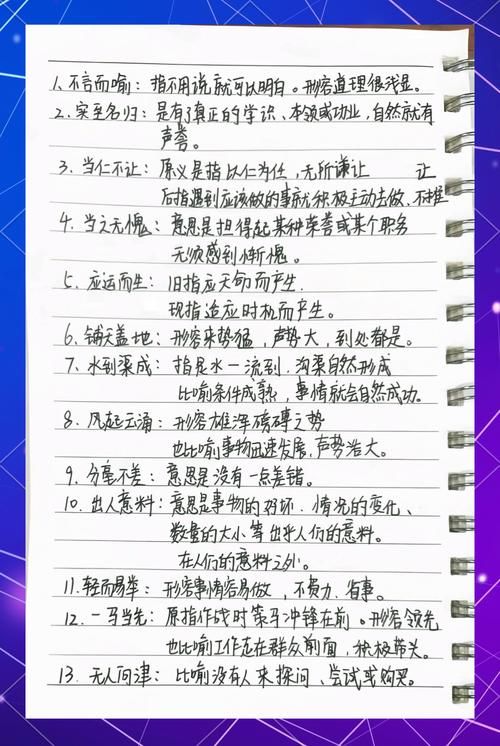 1、不言而喻：指不用说就可以明白。形容道理很浅显。
2、实至名归：是有了真正的学识、本领或功业，自然就有
声誉。
3、当仁不让：原义是指以仁为任，无所谦让 让
后指遇到应该做的事就积极主动去做、不推
4、当之无愧：意思是担得起某种荣誉或某个职务
无须感到惭愧。
5、应运而生：旧指应天命而产生.
现指适应时机而产生。
6、铺天盖地：形容来势猛，声势大，到处都是。
7、水到渠成：指是水一流到，沟渠自然形成
比喻条件成熟，事情就会自然成功。
8、风起云涌：形容雄浑磅礴之势
也比喻事物迅速发展，声势浩大。
9、分毫不差：意思是没有一点差错。
10、出人意料：意思是事物的好坏、情况的变化、
数量的大小等出乎人们的意料。
在人们的意料之外。
11、轻而易举：形容事情容易做，不费力、省事。
12、一马当先：原指作战时策马冲锋在前。形容领先
也比喻工作走在群众前面，积极带头。
13、无人问津：比喻没有人来探问、尝试或购买。